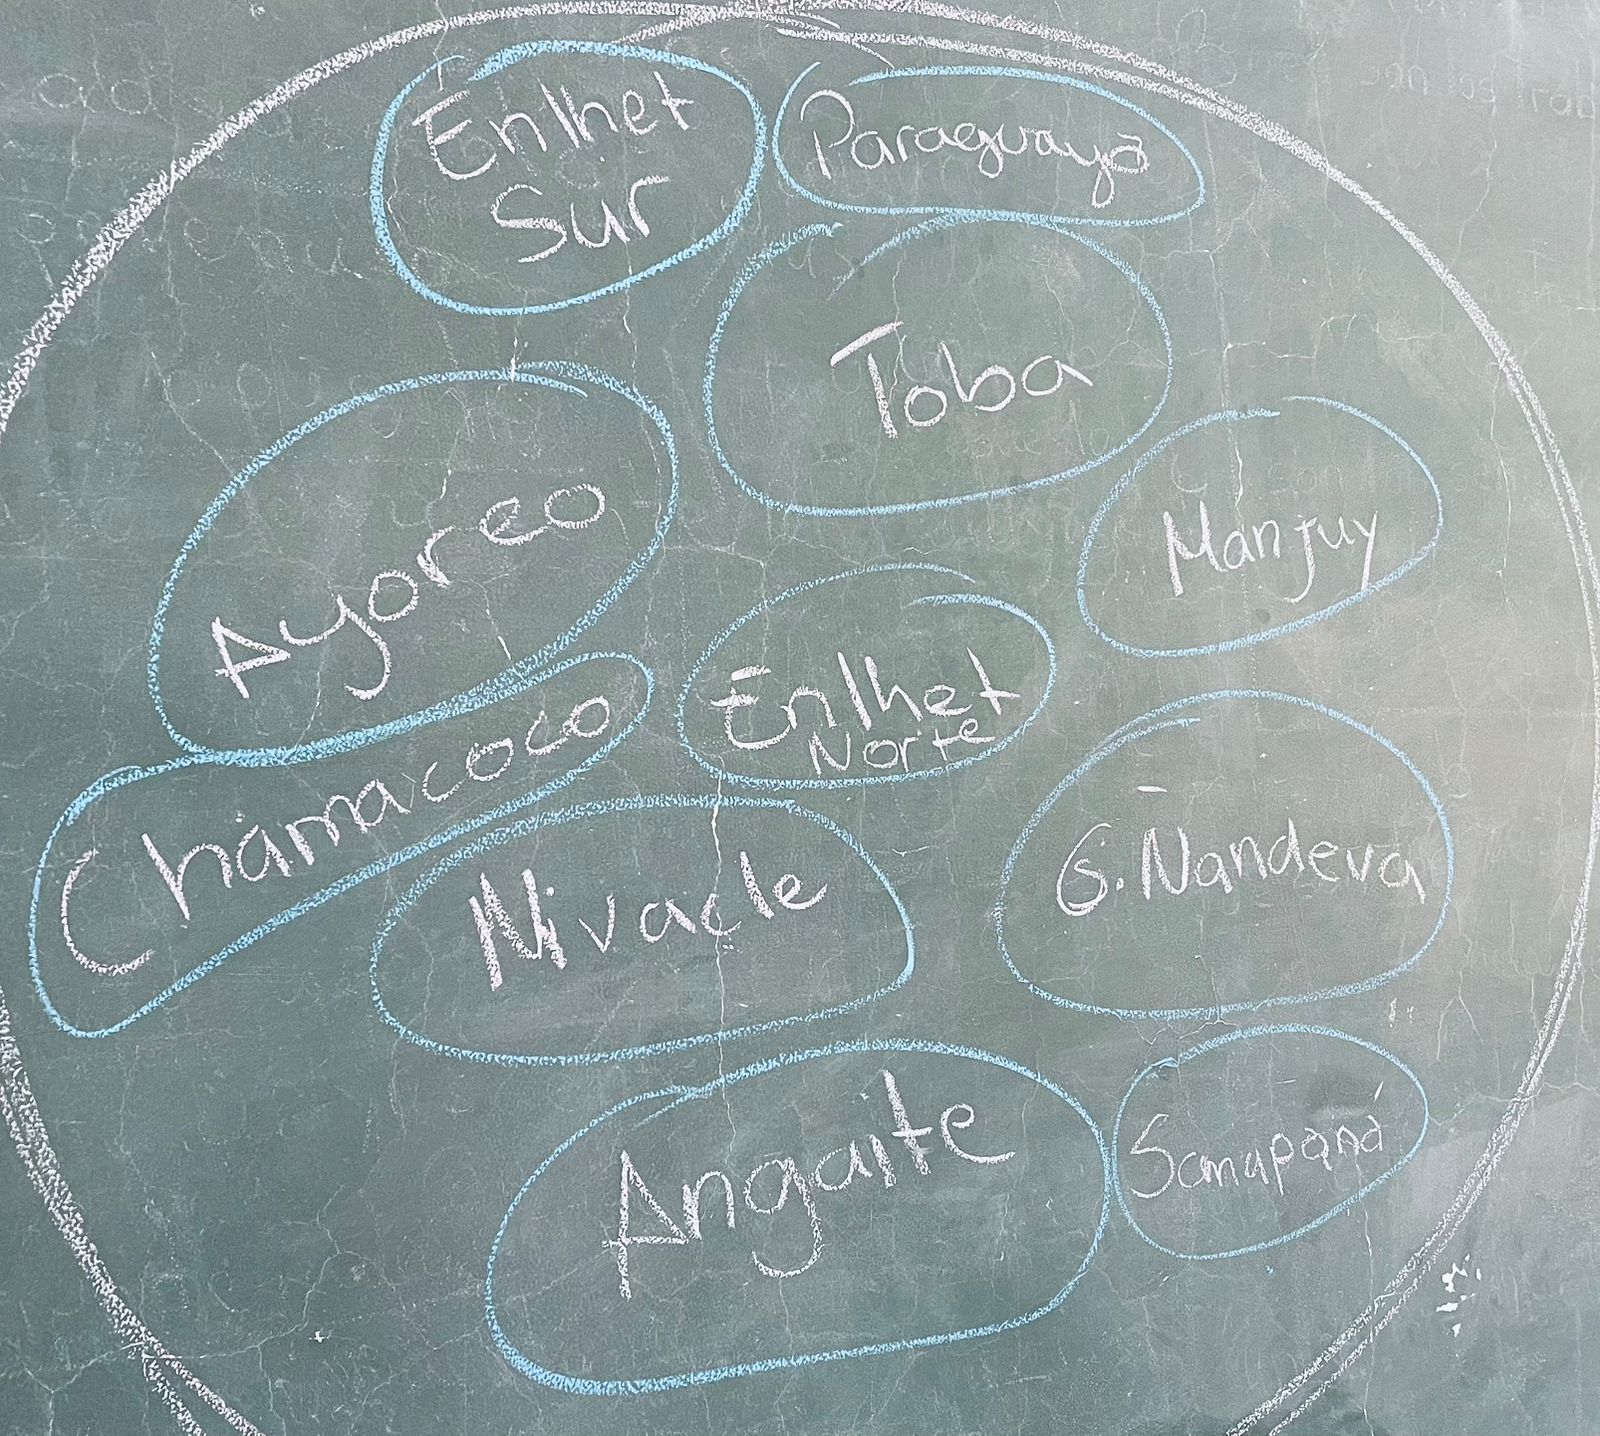 Enlhet
Sur
Paraguaya
Toba
Ayoreo
Manjuy
Enlhet
Norte
Chamacoco
Nivacle
G. Ñandeva
Angaite
Sanapaná